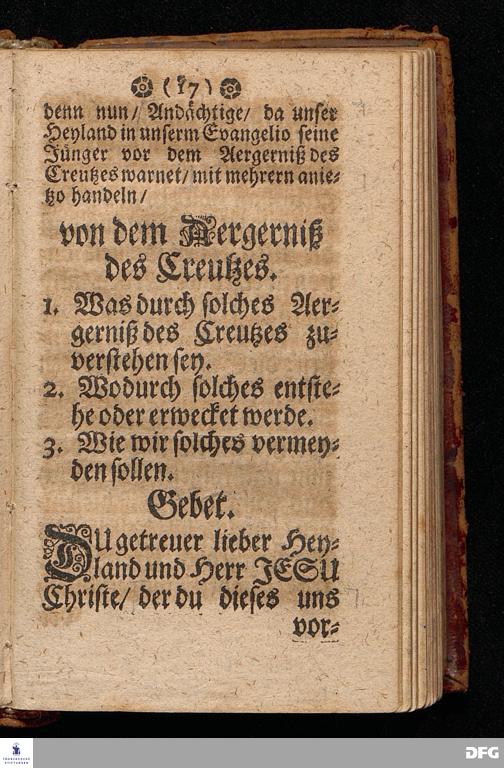 (17)
denn nun/ Andächtige/ da unser
Heyland in unserm Evangelio seine
Jünger vor dem Aergerniß des
Creutzes warnet/ mit mehrern anie-
tzo handeln/
von dem Aergerniß
des Creutzes.
1. Was durch solches Aer-
gerniß des Creutzes zu-
verstehen sey.
2. Wodurch solches entste-
he oder erwecket werde.
3. Wie wir solches vermey-
den sollen.
Gebet.
DU getreuer lieber Hey-
land und Herr JESU
Christe/ der du dieses uns
vor-
FRANCKESCHE
STIFTUNGEN
DFG